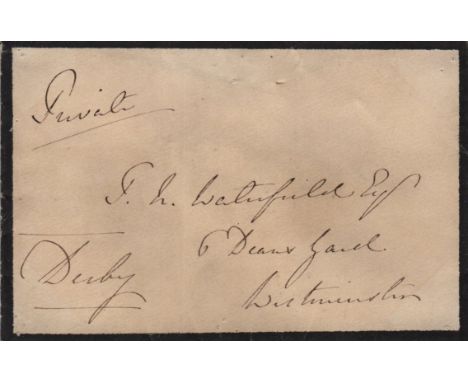 Private
T. N. Waterfield Esq
6 Deans Yard
Derby
Westminster